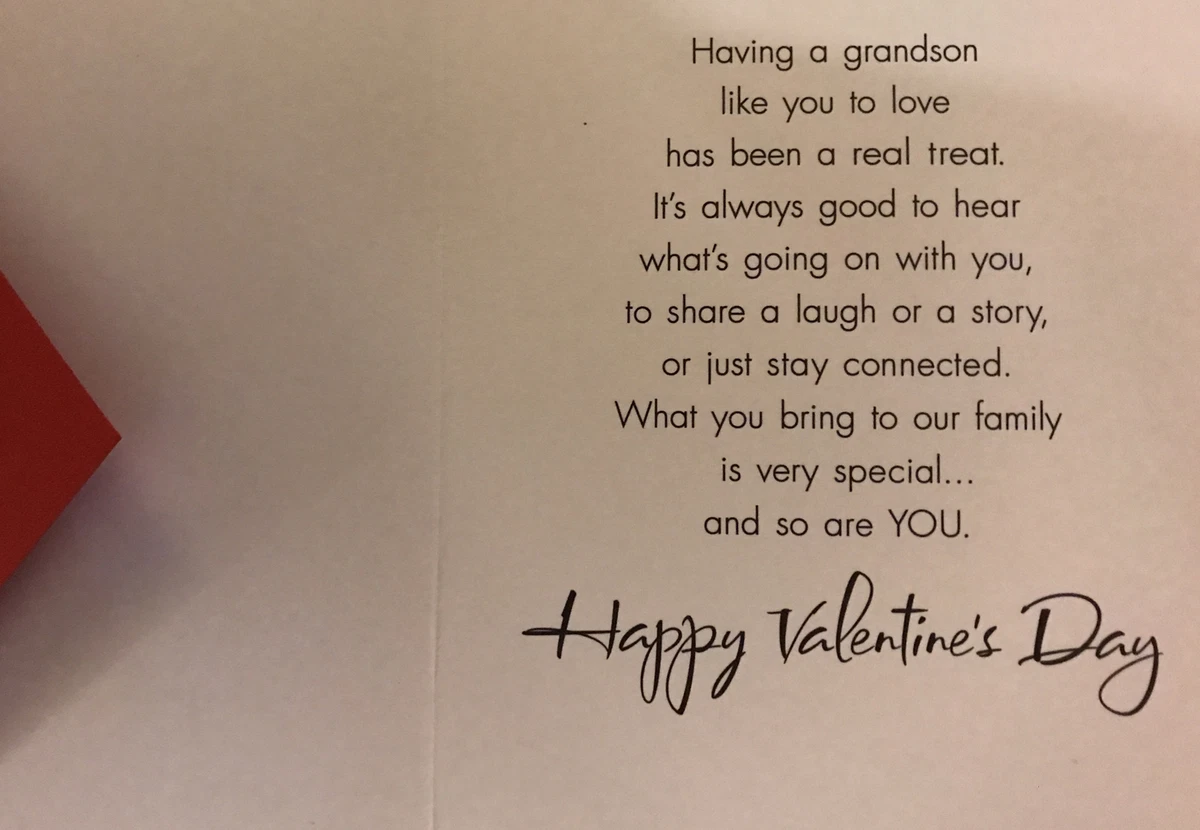 Having a grandson
like you to love
has been a real treat.
It's always good to hear
what's going on with you,
to share a laugh or a story,
or just stay connected.
What you bring to our family
is very special...
and so are YOU.
Happy Valentine's Day